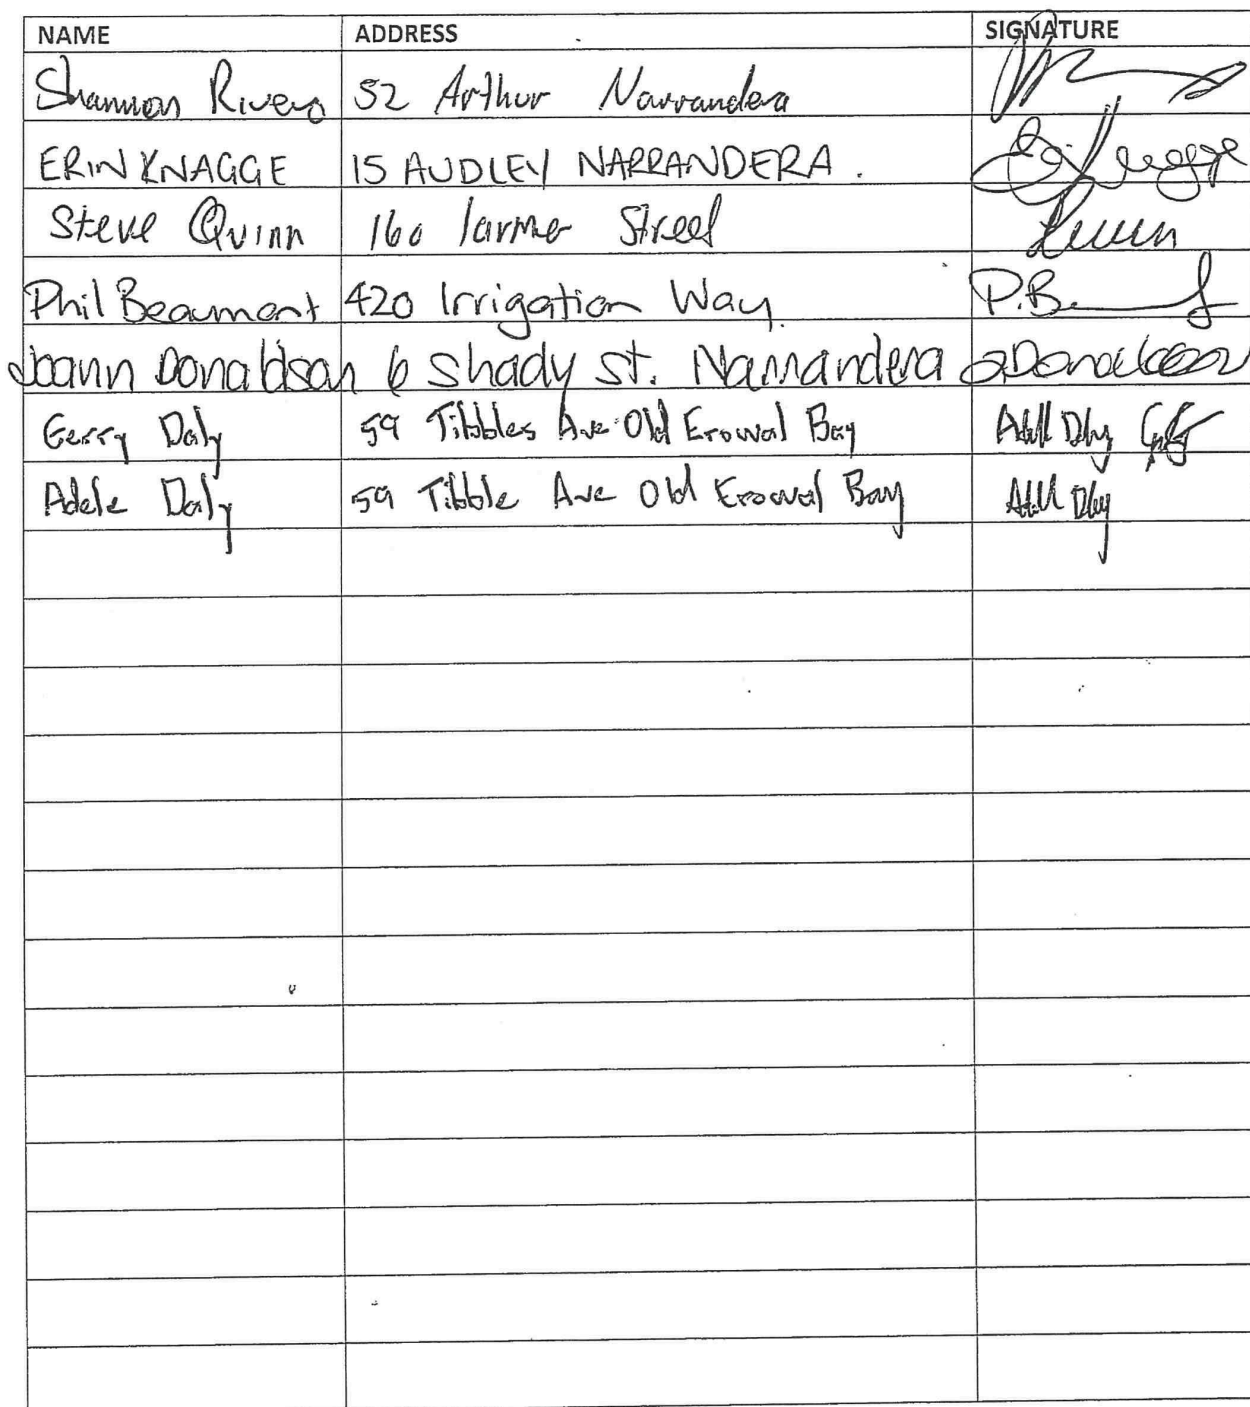 NAME ADDRESS SIGNATURE
Shannon Rivers 52 Arthur Narrandera
ERIN KNAGGE 15 AUDLEY NARRANDERA.
Steve Quinn 160 larmer Street
Phil Beaumont 420 Irrigation Way P.B
Joann Donaldson 6 Shady St. Narrandera Donaldson
Gerry Daly 59 Tibbles Ave Old Erowal Bay
Adele Daly 59 Tibble Ave Old Erowal Bay